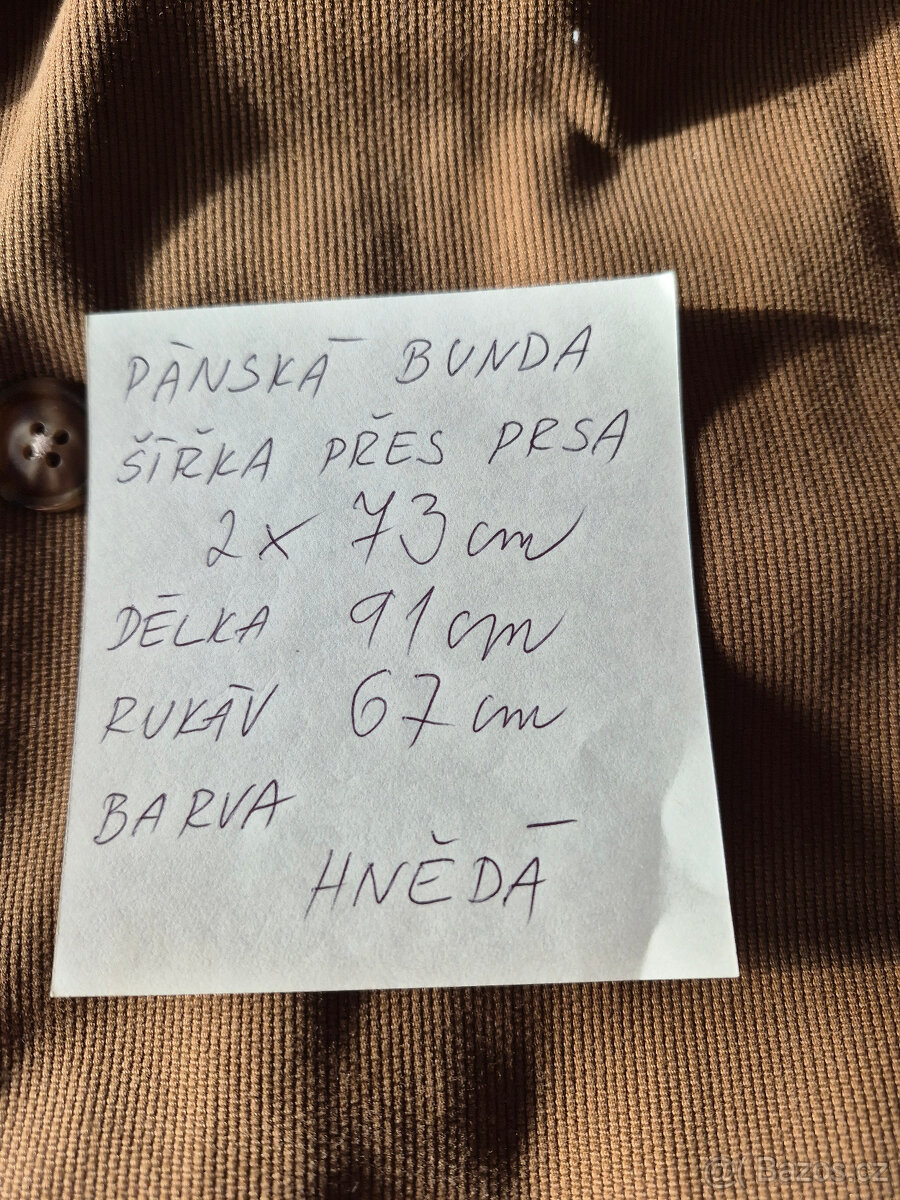 PÁNSKÁ BUNDA
ŠÍŘKA PŘES PRSA
2x 73 cm
DÉLKA 91 cm
RUKÁV 67 cm
BARVA
HNĚDÁ
@ Bazos.cz